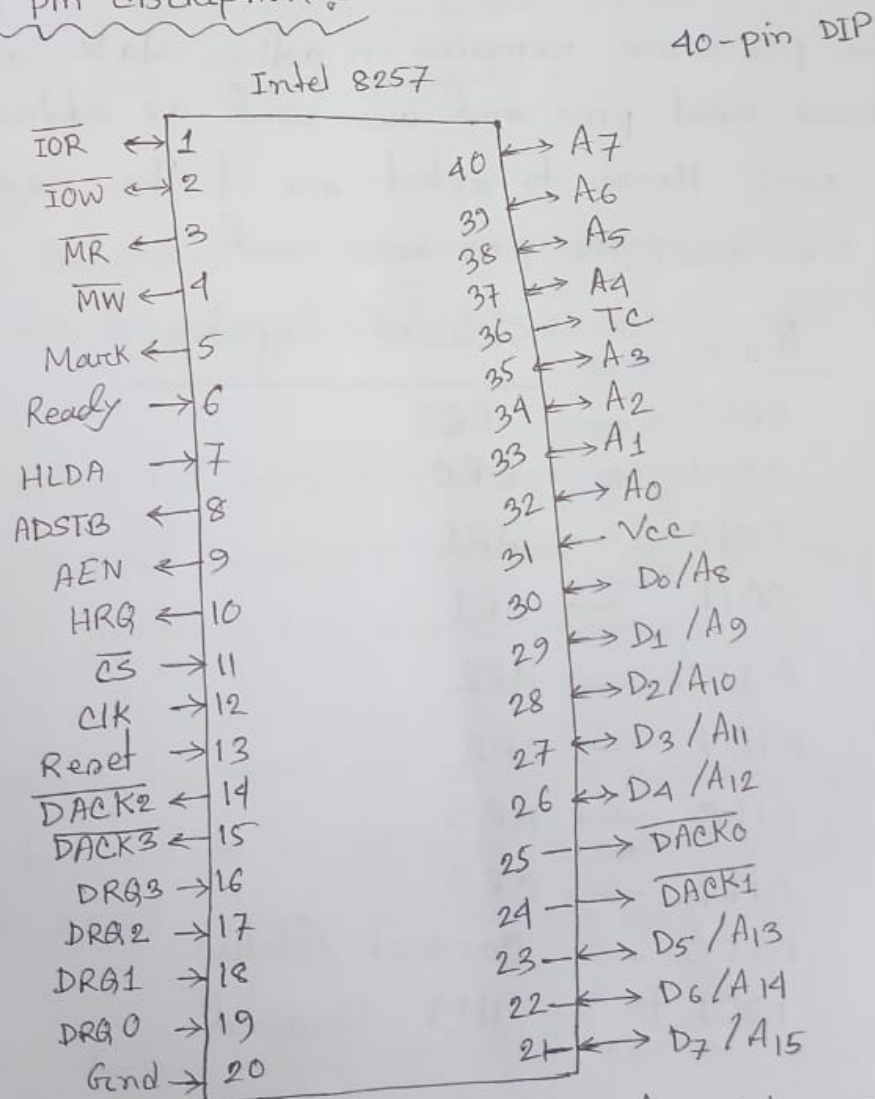 pin
40-pin DIP
Intel 8257
I̅O̅R̅ ↔ 1
I̅O̅W̅ ↔ 2
M̅R̅ ← 3
M̅W̅ ← 4
Mark ← 5
Ready → 6
HLDA → 7
ADSTB ← 8
AEN ← 9
HRQ ← 10
C̅S̅ → 11
ClK → 12
Reset → 13
D̅A̅C̅K̅2̅ ← 14
D̅A̅C̅K̅3̅ ← 15
DRQ3 → 16
DRQ2 → 17
DRQ1 → 18
DRQ0 → 19
Gnd → 20
40 ↔ A7
39 ↔ A6
38 ↔ A5
37 ↔ A4
36 → TC
35 ↔ A3
34 ↔ A2
33 ↔ A1
32 ↔ A0
31 ← Vcc
30 ↔ D0/A8
29 ↔ D1/A9
28 ↔ D2/A10
27 ↔ D3/A11
26 ↔ D4/A12
25 → D̅A̅C̅K̅0̅
24 → D̅A̅C̅K̅1̅
23 ↔ D5/A13
22 ↔ D6/A14
21 ↔ D7/A15